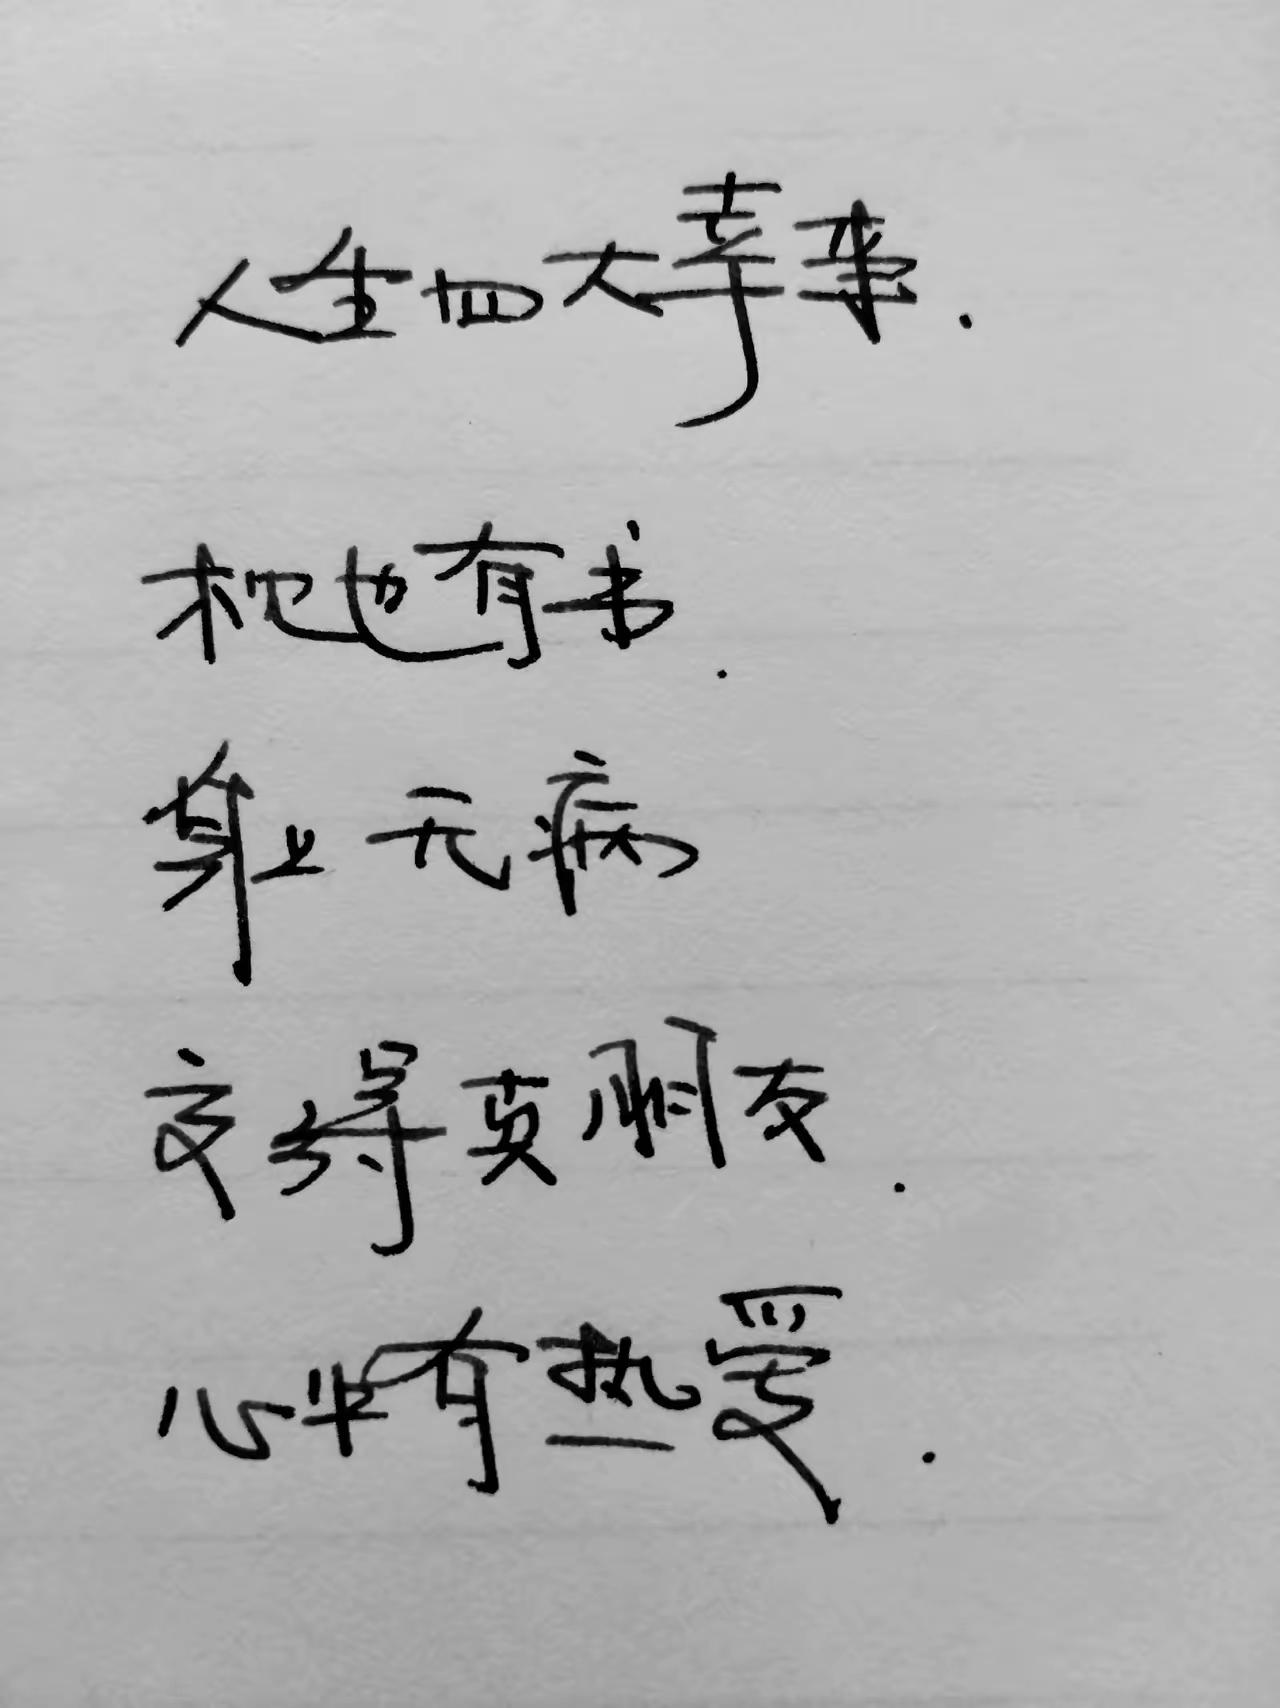 人生四大幸事.
枕边有书.
身上无病
交得真朋友.
心中有热爱.